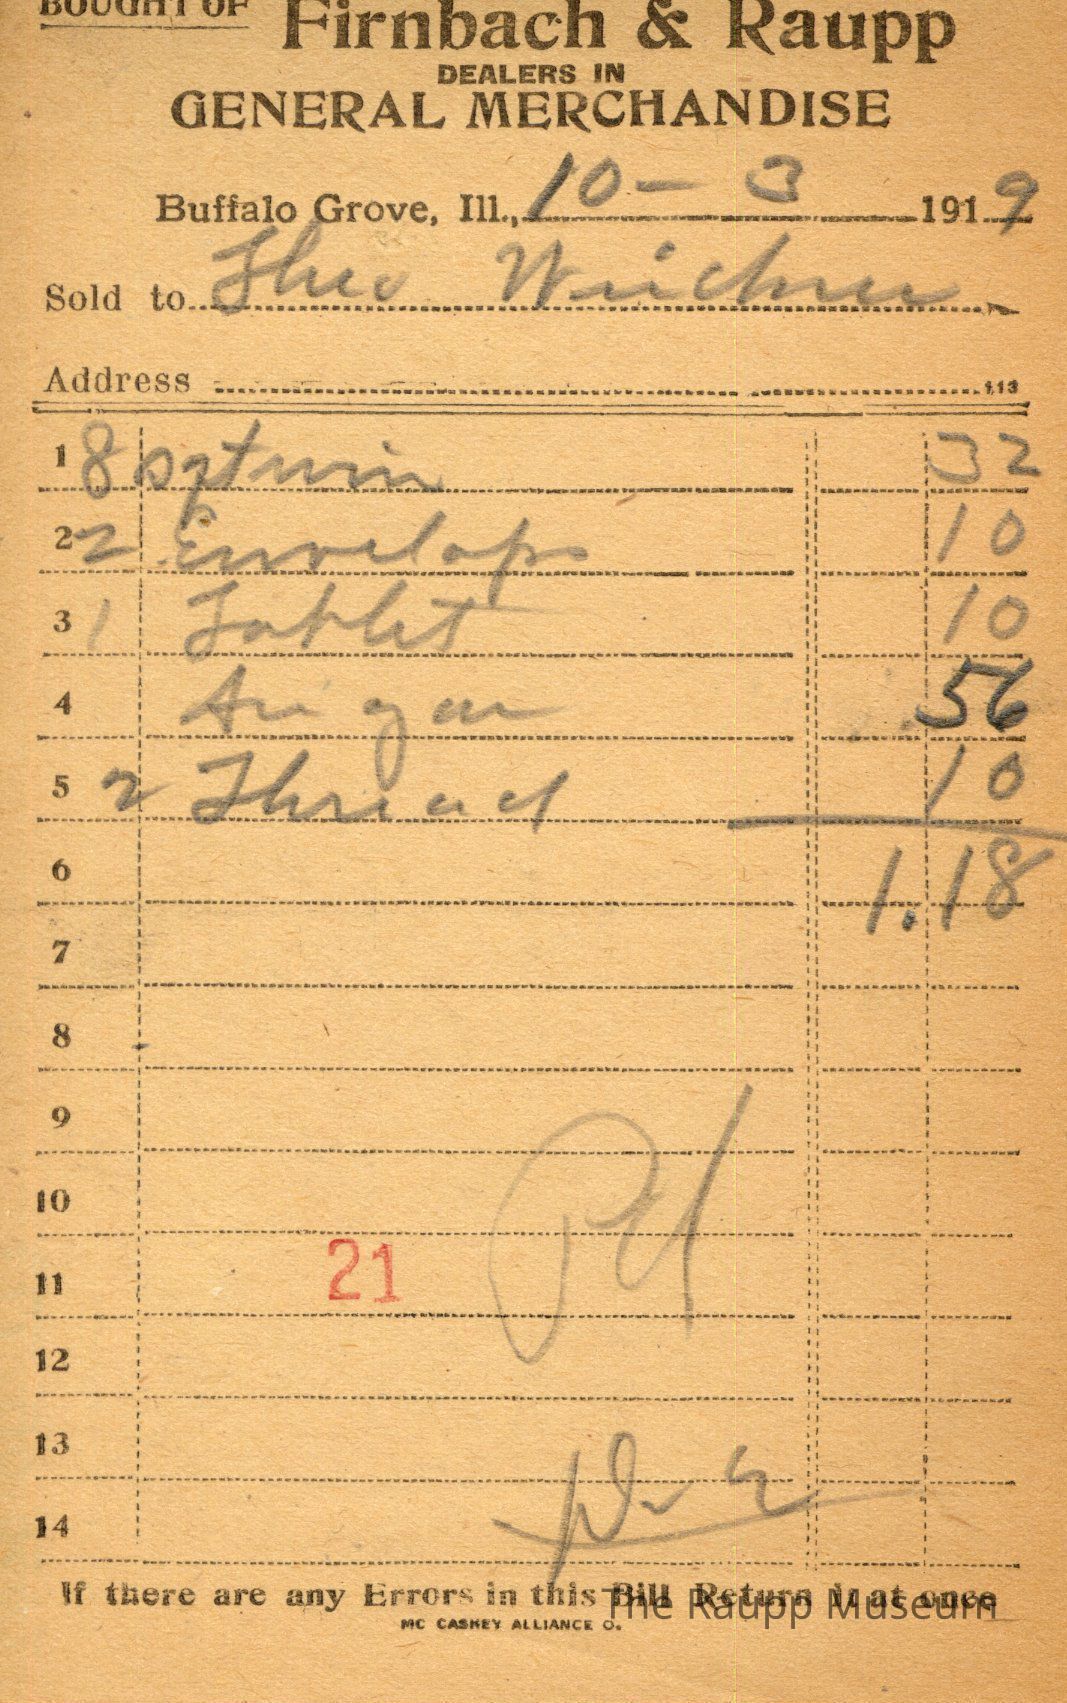 BOUGHT OF Firnbach & Raupp
DEALERS IN
GENERAL MERCHANDISE
Buffalo Grove, Ill., 10 - 3 1919
Sold to Theo
Address 113
1 8 32
2 2 Envelops 10
3 1 Tablet 10
4 56
5 2 Thread 10
6 1.18
7
8
9
10
Pd
11 21
12
13
14
If there are any Errors in this Bill Return it at once
MC CASKEY ALLIANCE O.
The Raupp Museum